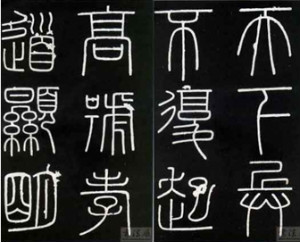 天下兵
不復起
高號孝
道顯明